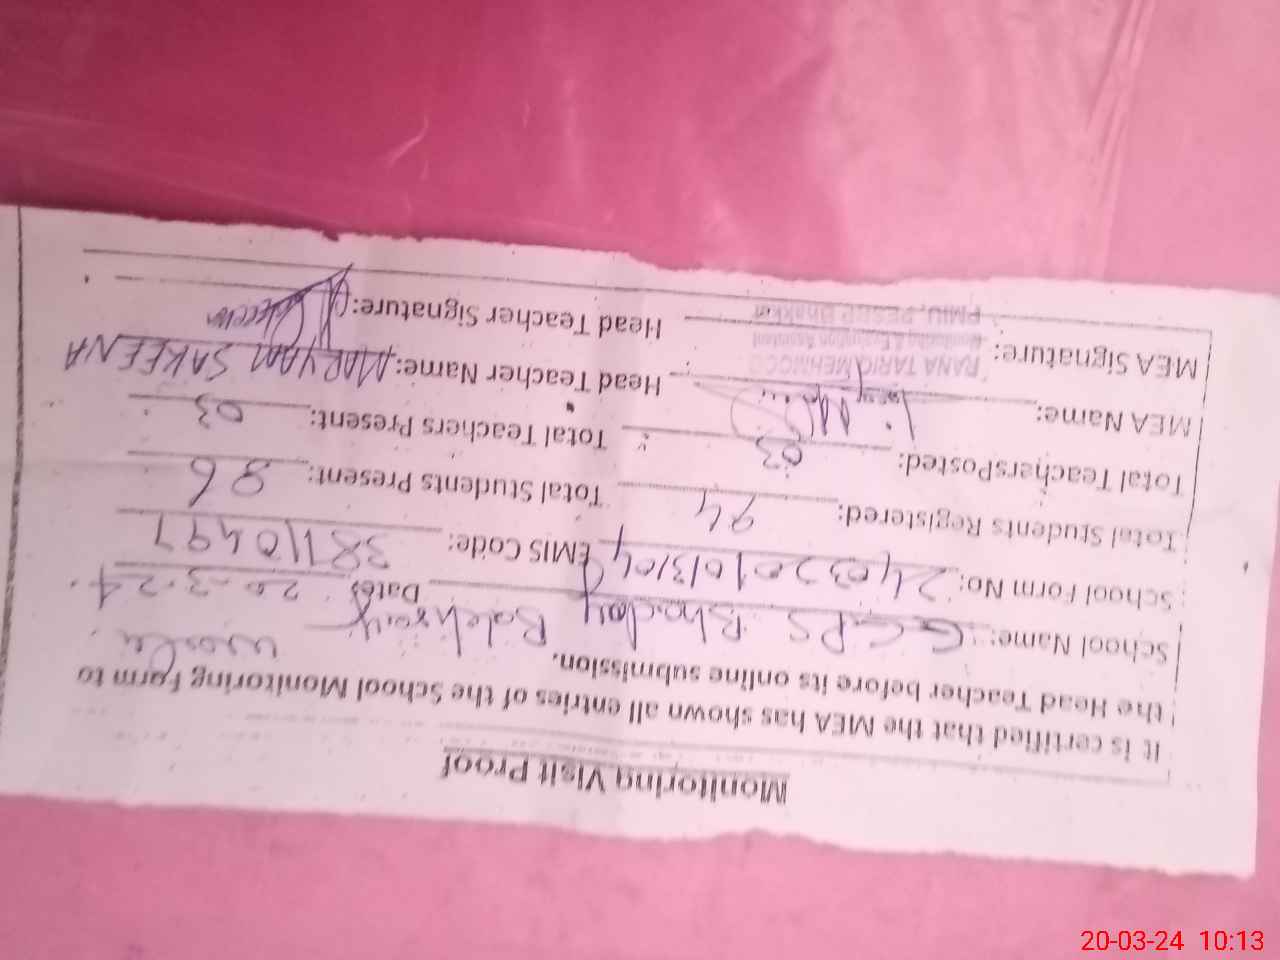 Monitoring Visit Proof
It is certified that the MEA has shown all entries of the School Monitoring Form to
the Head Teacher before its online submission.
School Name: GGPS Bhoday Wala
Date: 20-3-24
School Form No: EMIS Code: 38110497
Total Students Registered: 94 Total Students Present: 86
Total TeachersPosted: 03 Total Teachers Present: 03
MEA Name: Head Teacher Name: MARYAM SAKEENA
MEA Signature: Head Teacher Signature:
RANA TARIQ MEHMOOD
Monitoring & Evaluation Assistant
PMIU, PESRP Bhakkar
20-03-24 10:13